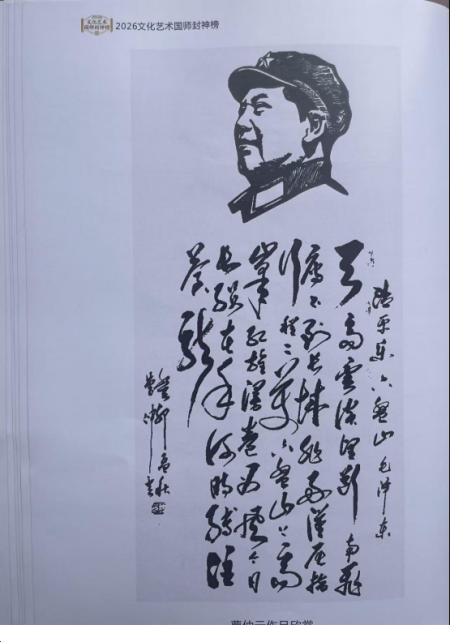 2026文化艺术国师封神榜
清平乐六盘山 毛泽东
天高雲淡望断南飛
雁不到长城非好漢屈指
行程二万六盘山上高
峰红旗漫卷西風今日
长缨在手何時缚住
苍龙
作品欣赏